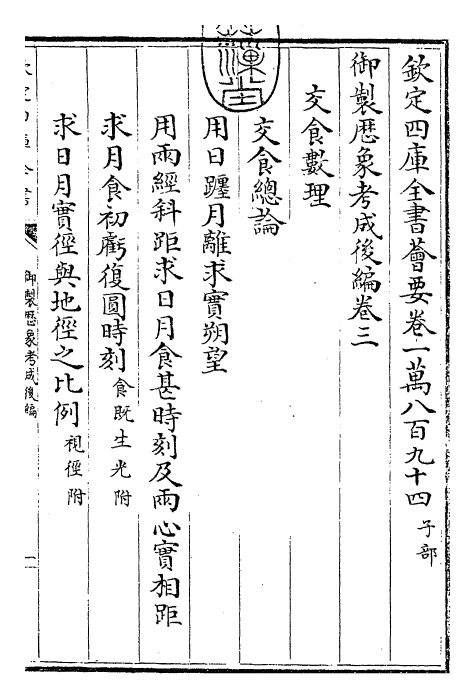 欽定四庫全書薈要卷一萬八百九十四 子部
御製厯象考成後編卷三
交食數理
交食總論
用日躔月離求實朔望
用兩經斜距求日月食甚時刻及兩心實相距
求月食初虧復圓時刻 食既生光附
求日月實徑與地徑之比例 視徑附
御製厯象考成後編